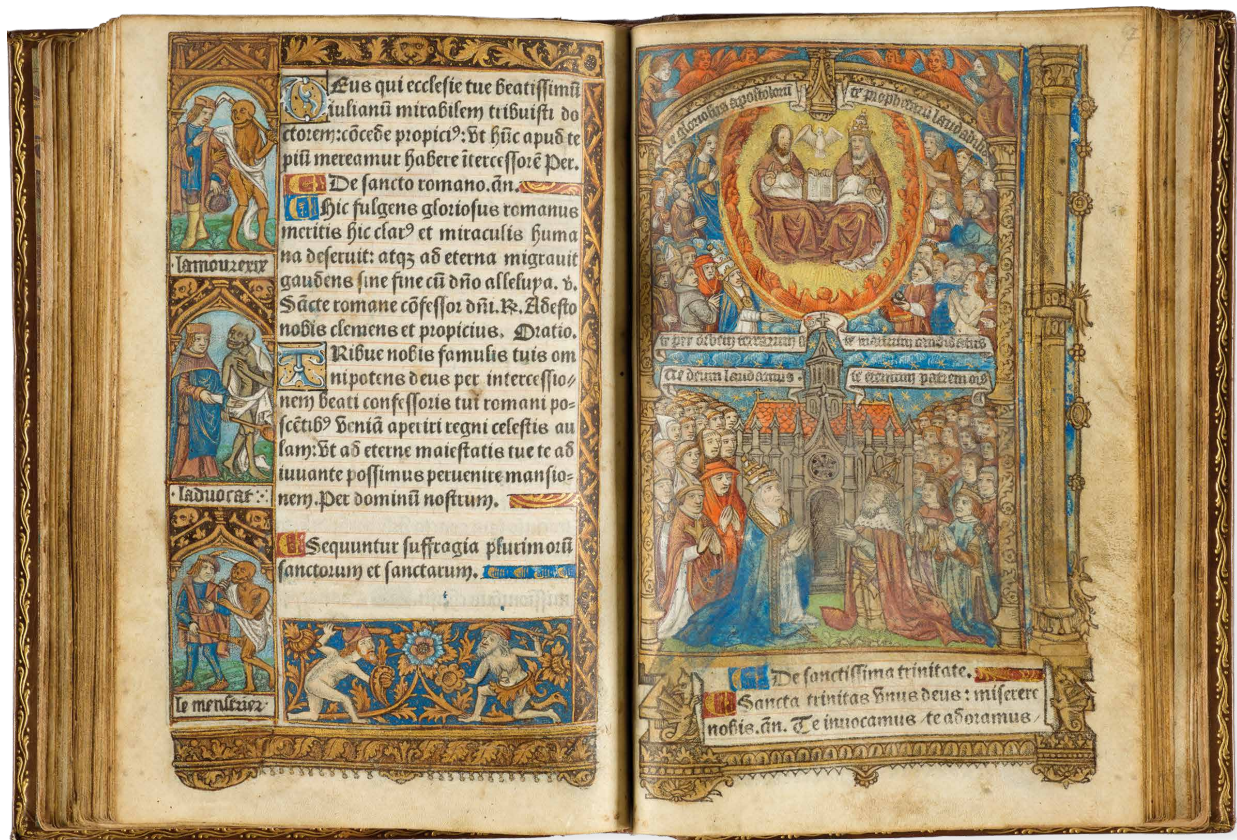 Deus qui ecclesie tue beatissimū
iulianū mirabilem tribuisti do
ctorem: cōcede propiciꝰ: vt hūc apud te
piū mereamur habere ītercessorē Per.
De sancto romano. añ.
Hic fulgens gloriosus romanus
meritis hic clarꝰ et miraculis huma
na deseruit: atqꝫ ad eterna migrauit
gaudens sine fine cū dño alleluya. v.
Sācte romane cōfessor dñi. ꝶ. Adesto
nobis clemens et propicius. Oratio.
TRibue nobis famulis tuis om
nipotens deus per intercessio⸗
nem beati confessoris tui romani po⸗
scētibꝰ veniā aperiri regni celestis au
lam: vt ad eterne maiestatis tue te ad
iuuante possimus peruenire mansio⸗
nem. Per dominū nostrum.
Sequuntur suffragia plurimorū
sanctorum et sanctarum.
lamourexix
laduocat
le menstrier
te gloriosus apostolorū
te prophetarū laudabil
te per orbem terrarum
te martirū candidatus
te deum laudamus
te eternum patrem
De sanctissima trinitate.
Sancta trinitas vnus deus: miserere
nobis. añ. Te inuocamus / te adoramus /